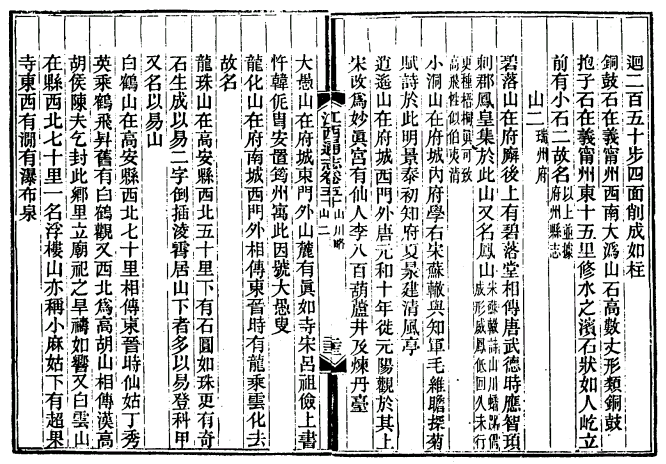 迴二百五十步四面削成如柱
銅鼓石在義甯州西南大溈山石高數丈形類銅鼓
抱子石在義甯州東十五里修水之濱石狀如人屹立
前有小石二故名以上並據府州縣志
山二瑞州府
碧落山在府廨後上有碧落堂相傳唐武德時應智頊
刺郡鳳皇集於此山又名鳳山宋蘇轍詩山川蟠踞偶成形威鳳低回久未行
更種梧桐真可致高飛性似伯夷清
小洞山在府城內府學右宋蘇轍與知軍毛維瞻探菊
賦詩於此明景泰初知府夏景建清風亭
逍遙山在府城西門外唐元和十年徙元陽觀於其上
宋改為妙眞宮有仙人李八百葫蘆井及煉丹臺
江西通志卷五十 山川略 山二
大愚山在府城東門外山麓有眞如寺宋呂祖儉上書
忤韓侂胄安置筠州寓此因號大愚叟
龍化山在府南城西門外相傳東晉時有龍乘雲化去
故名
龍珠山在高安縣西北五十里下有石圓如珠更有奇
石生成以易二字倒插凌霄居山下者多以易登科甲
又名以易山
白鶴山在高安縣西北七十里相傳東晉時仙姑丁秀
英乘鶴飛昇舊有白鶴觀又西北為高胡山相傳漢高
胡侯陳夫乞封此鄉里立廟祀之旱禱如響又白雲山
在縣西北七十里一名浮樓山亦稱小麻姑下有超果
寺東西有澗有瀑布泉